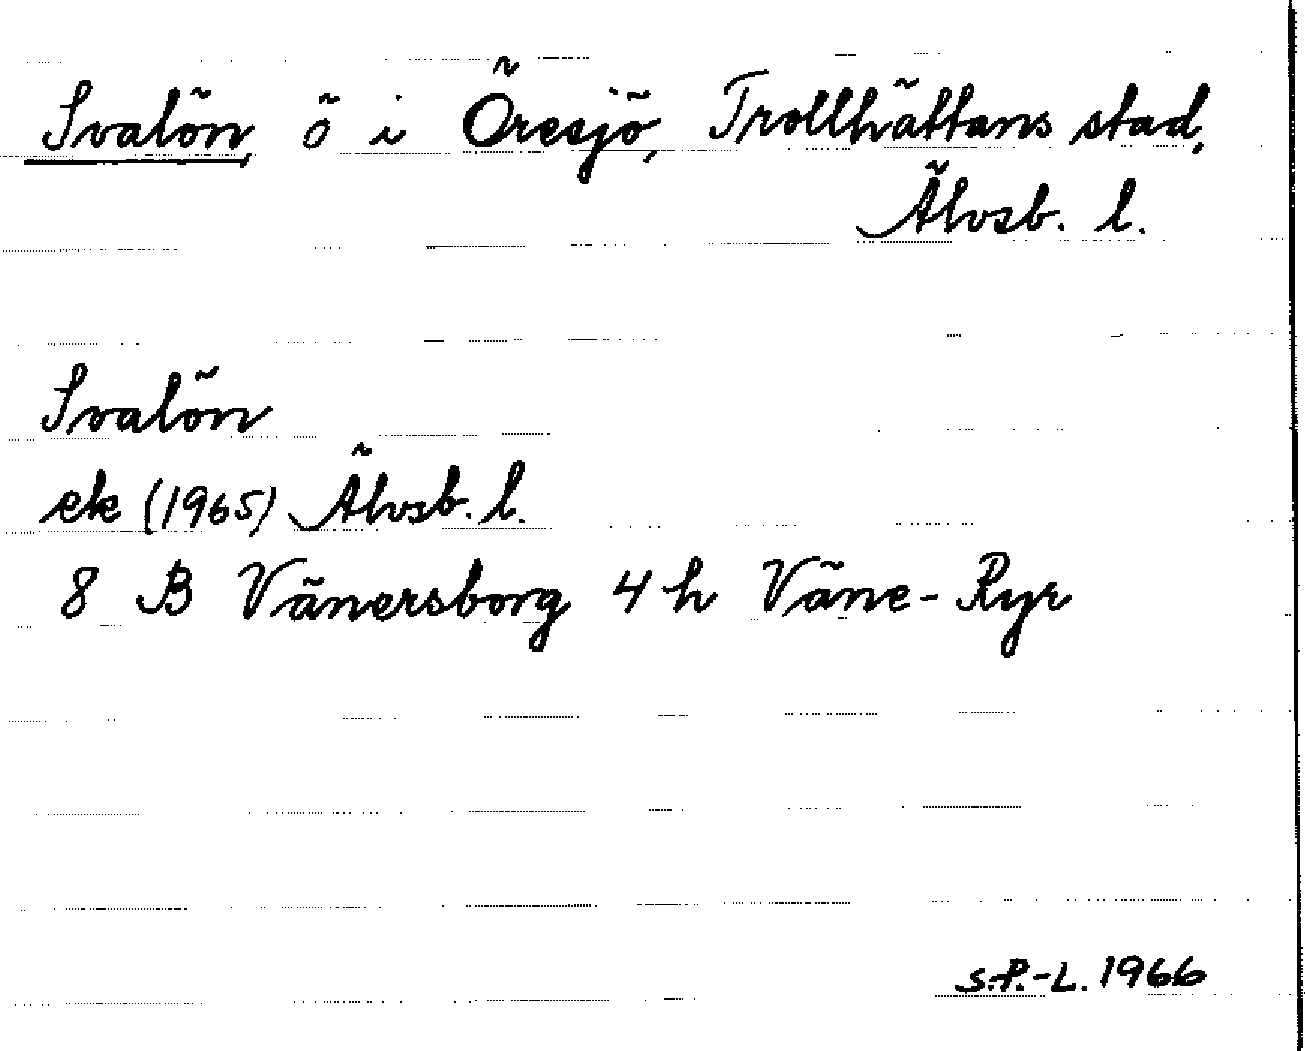 Svalön, ö i Öresjö, Trollhättans stad,
Älvsb. l.
Svalön
ek (1965) Älvsb. l.
8 B Vänersborg 4 h Väne-Ryr
S.P.-L. 1966